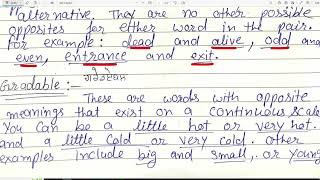 alternative. They are no other possible
opposites for either word in the pair.
For example: dead and alive, odd and
even, entrance and exit.
Gradable :-
These are words with opposite
meanings that exist on a continuous scale
You can be a little hot or very hot.
and a little cold or very cold. Other
examples include big and small, or young